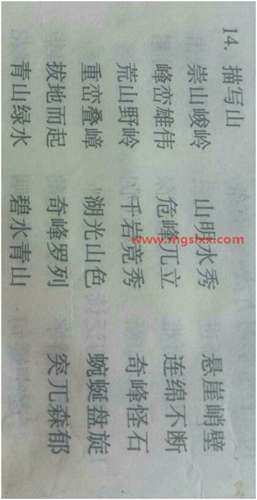 14. 描写山
崇山峻岭 山明水秀 悬崖峭壁
峰峦雄伟 危峰兀立 连绵不断
荒山野岭 千岩竞秀 奇峰怪石
重峦叠嶂 湖光山色 蜿蜒盘旋
拔地而起 奇峰罗列 突兀森郁
青山绿水 碧水青山